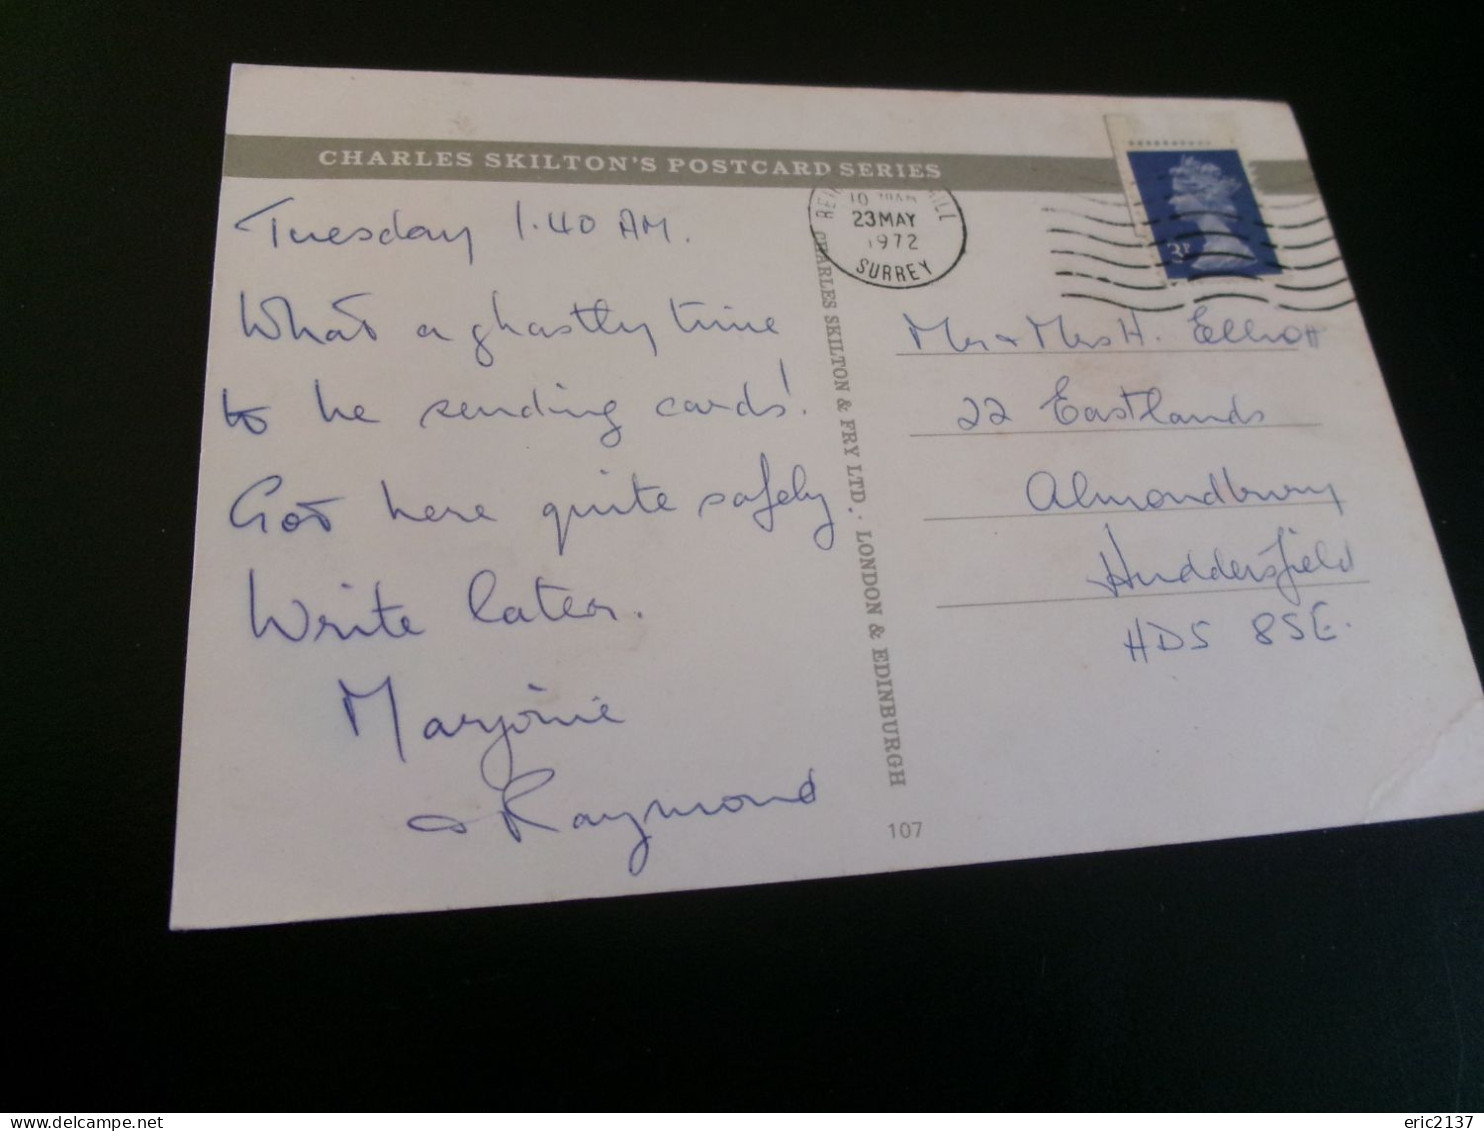 CHARLES SKILTON'S POSTCARD SERIES
Tuesday 1.40 AM.
What a ghastly time
to be sending cards!
Got here quite safely
Write later.
Marjorie
& Raymond
10 AM
23 MAY
1972
SURREY
3P
CHARLES SKILTON & FRY LTD., LONDON & EDINBURGH
Mr & Mrs H. Elliott
22 Eastlands
Almondbury
Huddersfield
HD5 8SE.
107
eric2137